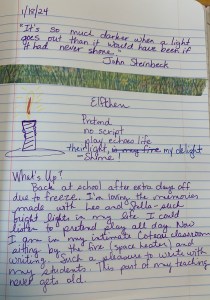 1/18/24
"It's so much darker when a light
goes out than it would have been if
it had never shone."
John Steinbeck
Elfthen
Pretend
no script
play echoes life
their light, is my fire my delight
- Shine!
What's Up?
Back at school after extra days off
due to freeze. I'm loving the memories
made with Leo and Jella - such
bright lights in my life. I could
listen to pretend play all day. Now
I am in my intimate Coteau classroom
sitting by the fire (space heater) and
writing. Such a pleasure to write with
my students. This part of my teaching
never gets old.